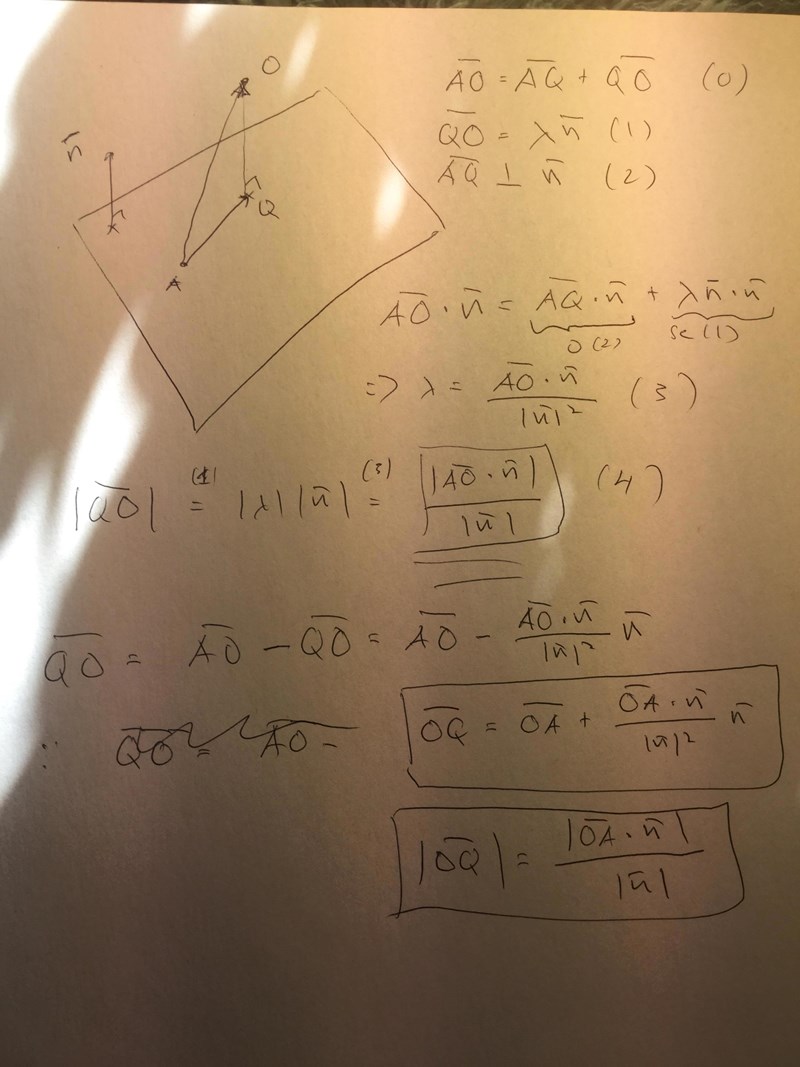 O
n̄
Q
A
A̅O̅ = A̅Q̅ + Q̅O̅ (0)
Q̅O̅ = λn̄ (1)
A̅Q̅ ⊥ n̄ (2)
A̅O̅ · n̄ = A̅Q̅ · n̄ + λn̄ · n̄
0 (2) se (1)
=> λ = A̅O̅ · n̄ / |n̄|² (3)
|Q̅O̅| (1)= |λ| |n̄| (3)= |A̅O̅ · n̄| / |n̄| (4)
Q̅O̅ = A̅O̅ − Q̅O̅ = A̅O̅ − A̅O̅ · n̄ / |n̄|² n̄
Q̅O̅ = A̅O̅ −
O̅Q̅ = O̅A̅ + O̅A̅ · n̄ / |n̄|² n̄
|O̅Q̅| = |O̅A̅ · n̄| / |n̄|